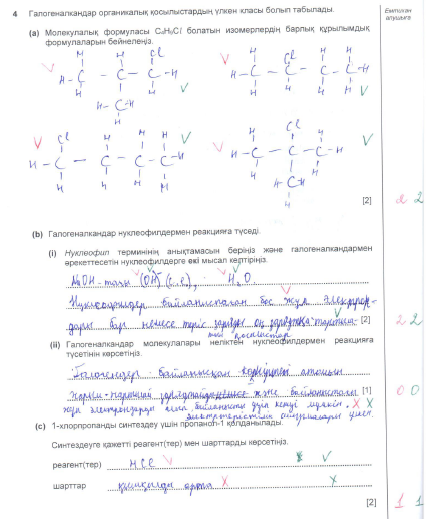 4 Галогеналкандар органикалық қосылыстардың үлкен класы болып табылады.
Емтихан алушыға
(a) Молекулалық формуласы C₄H₉Cl болатын изомерлердің барлық құрылымдық
формулаларын бейнелеңіз.
H H Cl
H - C - C - C - H
H H
H - C - H
H
H Cl H H
H - C - C - C - C - H
H H H H
Cl H H H
H - C - C - C - C - H
H H H H
H Cl H
H - C - C - C - H
H H
H - C - H
H
[2]
2 2
(b) Галогеналкандар нуклеофилдермен реакцияға түседі.
(i) Нуклеофил терминінің анықтамасын беріңіз және галогеналкандармен
әрекеттесетін нуклеофилдерге екі мысал келтіріңіз.
NaOH-тағы (OH)⁻ (с.е.), H₂O.
Нуклеофилдер байланыспаған бос жұп электрон-
дары бар немесе теріс зарядты оң зарядқа
[2]
2 2
(ii) Галогеналкандар молекулалары неліктен нуклеофилдермен реакцияға
түсетінін көрсетіңіз.
Галогендер байланысқан көміртегі атомын
және байланыстағы [1]
0 0
жұп электрондарды байланысты мүмкін.
(c) 1-хлорпропанды синтездеу үшін пропанол-1 қолданылады.
Синтездеуге қажетті реагент(тер) мен шарттарды көрсетіңіз.
реагент(тер) HCl
шарттар қышқылды орта
[2]
1 1